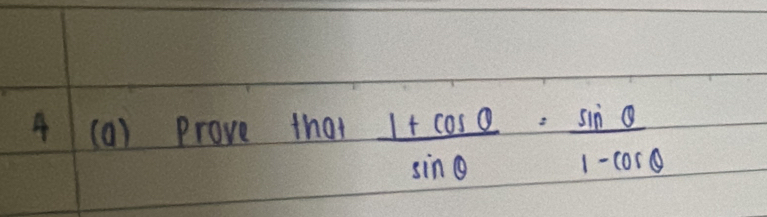 4 (a) Prove that (1 + cos θ)/(sin θ) = (sin θ)/(1 - cos θ)